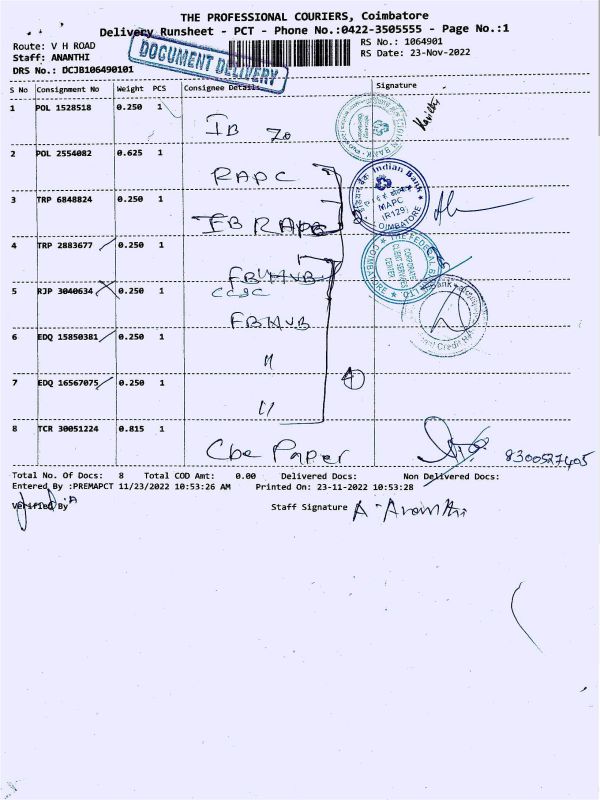 THE PROFESSIONAL COURIERS, Coimbatore
Delivery Runsheet - PCT - Phone No.:0422-3505555 - Page No.:1
Route: V H ROAD
RS No.: 1064901
Staff: ANANTHI
RS Date: 23-Nov-2022
DRS No.: DCJB106490101
DOCUMENT DELIVERY
S No Consignment No Weight PCS Consignee Details Signature
1 POL 1528518 0.250 1
IB Zo
2 POL 2554082 0.625 1
RAPC
Indian Bank
MAPC
(R129)
COIMBATORE
3 TRP 6848824 0.250 1
IB RAPC
4 TRP 2883677 0.250 1
FBMVB
CCSC
THE FEDERAL BANK LTD
CORPORATE
CLIENT SERVICES
CENTRE
COIMBATORE
5 RJP 3040634 0.250 1
FBMVB
6 EDQ 15850381 0.250 1
"
7 EDQ 16567075 0.250 1
"
4
8 TCR 30051224 0.815 1
Cbe Paper
8300527405
Total No. Of Docs: 8 Total COD Amt: 0.00 Delivered Docs: Non Delivered Docs:
Entered By :PREMAPCT 11/23/2022 10:53:26 AM Printed On: 23-11-2022 10:53:28
Verified By
Staff Signature A-Ananthi